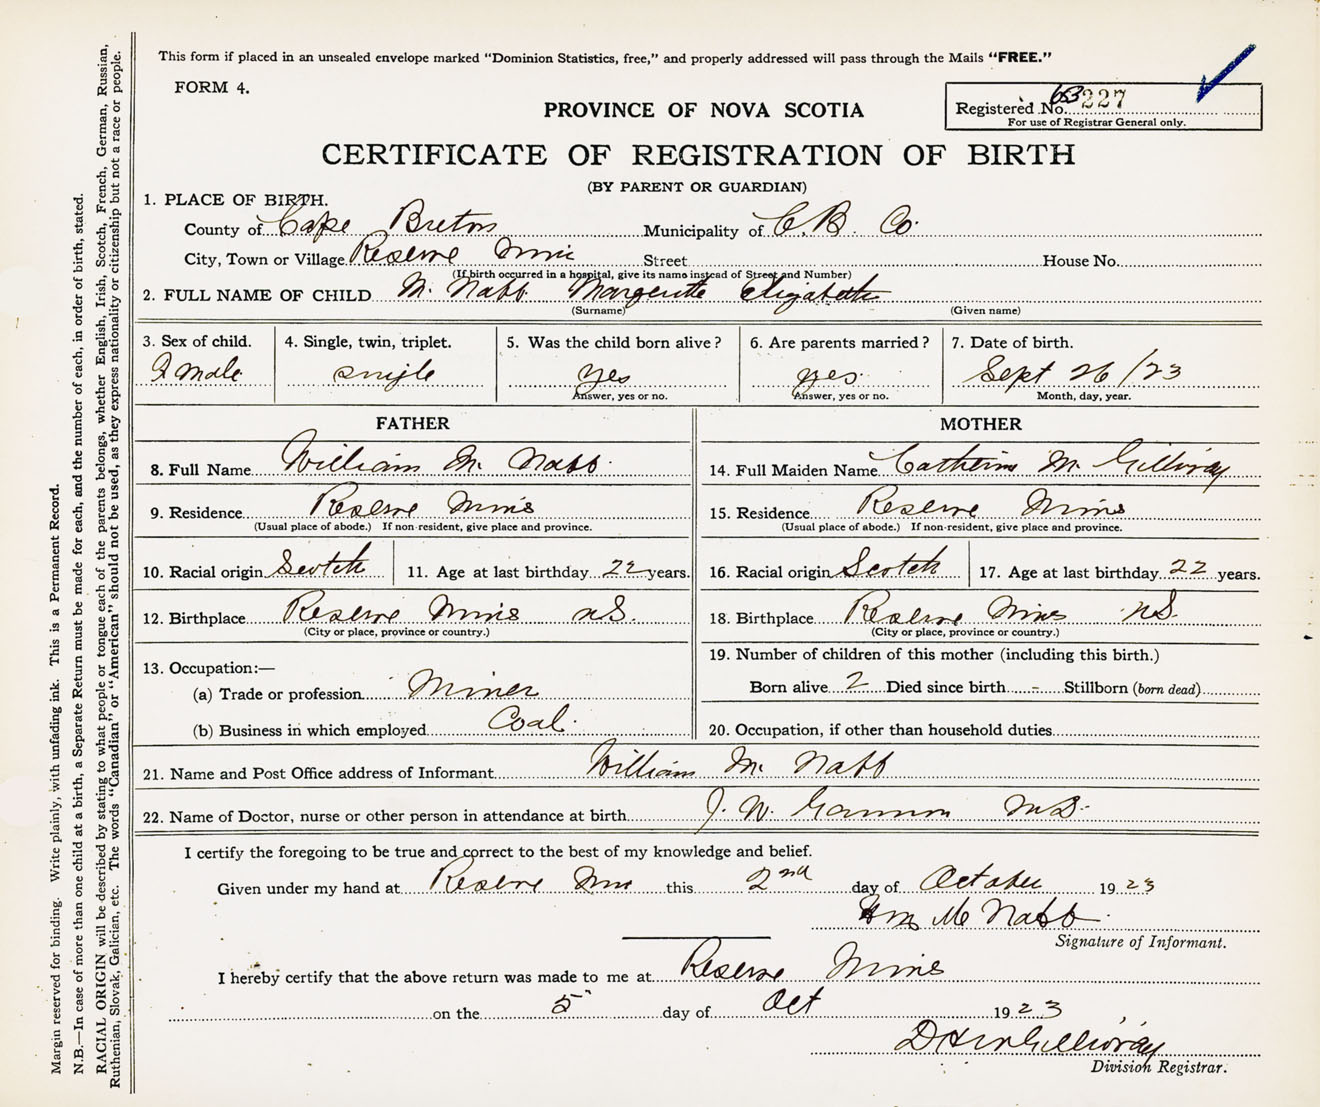 This form if placed in an unsealed envelope marked "Dominion Statistics, free," and properly addressed will pass through the Mails "FREE."
FORM 4.
Registered No. 227
For use of Registrar General only.
PROVINCE OF NOVA SCOTIA
CERTIFICATE OF REGISTRATION OF BIRTH
(BY PARENT OR GUARDIAN)
1. PLACE OF BIRTH.
County of Cape Breton Municipality of C.B. Co.
City, Town or Village Reserve Mine Street House No.
(If birth occurred in a hospital, give its name instead of Street and Number)
2. FULL NAME OF CHILD Mc Nabb Margerette Elizabeth
(Surname) (Given name)
3. Sex of child. 4. Single, twin, triplet. 5. Was the child born alive? 6. Are parents married? 7. Date of birth.
Fmale single yes yes. Sept 26/23
Answer, yes or no. Answer, yes or no. Month, day, year.
FATHER MOTHER
8. Full Name William Mc Nabb. 14. Full Maiden Name Catherine Mc Gillivray
9. Residence Reserve Mines 15. Residence Reserve Mines
(Usual place of abode.) If non-resident, give place and province. (Usual place of abode.) If non-resident, give place and province.
10. Racial origin Scotch 11. Age at last birthday 22 years. 16. Racial origin Scotch 17. Age at last birthday 22 years.
12. Birthplace Reserve Mines N.S. 18. Birthplace Reserve Mines N.S.
(City or place, province or country.) (City or place, province or country.)
13. Occupation:— 19. Number of children of this mother (including this birth.)
(a) Trade or profession Miner Born alive 2 Died since birth - Stillborn (born dead)
(b) Business in which employed Coal. 20. Occupation, if other than household duties
21. Name and Post Office address of Informant William Mc Nabb
22. Name of Doctor, nurse or other person in attendance at birth J. W. Gannon M.D.
I certify the foregoing to be true and correct to the best of my knowledge and belief.
Given under my hand at Reserve Mine this 2nd day of October 1923
Wm Mc Nabb
Signature of Informant.
I hereby certify that the above return was made to me at Reserve Mines
on the 5 day of Oct 1923
D H McGillivray
Division Registrar.
Margin reserved for binding. Write plainly, with unfading ink. This is a Permanent Record.
N.B.—In case of more than one child at a birth, a Separate Return must be made for each, and the number of each, in order of birth, stated.
RACIAL ORIGIN will be described by stating to what people or tongue each of the parents belongs, whether English, Irish, Scotch, French, German, Russian,
Ruthenian, Slovak, Galician, etc. The words "Canadian" or "American" should not be used, as they express nationality or citizenship but not a race or people.